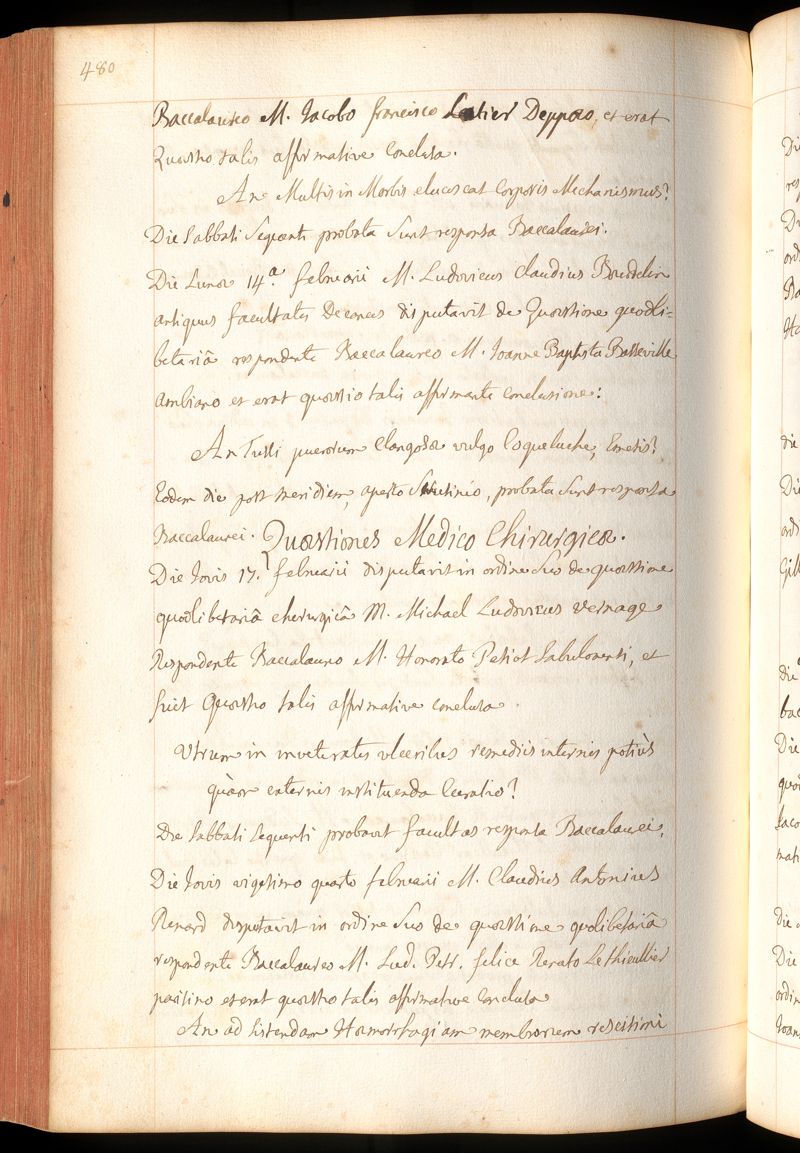 480
Baccalaureo M. Jacobo francisco Latier Deppao, et erat
Quæstio talis affirmative conclusa.
An Multis in Morbis elucescat Corporis Mechanismus?
Die Sabbati Sequenti probata Sunt responsa Baccalaurei.
Die Lunæ 14.a februarii M. Ludovicus Claudius Bourdelin
antiquus facultatis Decanus disputavit de Quæstione quodli=
betariâ respondente Baccalaureo M. Joanne Baptista Basseville
Ambiano et erat quæstio talis affirmante conclusione:
An Tussi puerorum Clangosæ vulgo Coqueluche, Emesis?
Eodem die post meridiem, aperto Scrutinio, probata Sunt responsa
Baccalaurei. Quæstiones Medico Chirurgicæ.
Die Jovis 17. februarii disputavit in ordine Suo de quæstione
quodlibetariâ chirurgicâ M. Michael Ludovicus Vernage
Respondente Baccalauro M. Honorato Petiot Sabuloventi, et
fuit Quæstio talis affirmative conclusa.
Utrum in inveteratis ulceribus remediis internis potiùs
quàm externis instituenda Curatio?
Die Sabbati Sequenti probavit facultas responsa Baccalaurei.
Die Jovis vigesimo quarto februarii M. Claudius Antonius
Renard disputavit in ordine Suo de quæstione quolibetariâ
respondente Baccalaureo M. Lud. Petr. felice Renato Lethieullier
parisino et erat quæstio talis affirmative Conclusa
An ad Sistendam Hæmorrhagiam membrorum rescissimi